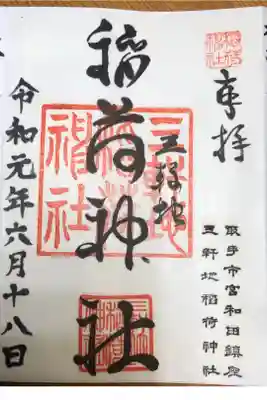 奉拝
取手市宮和田鎮座
三軒地稲荷神社
三軒地
稲荷神社
令和元年六月十八日